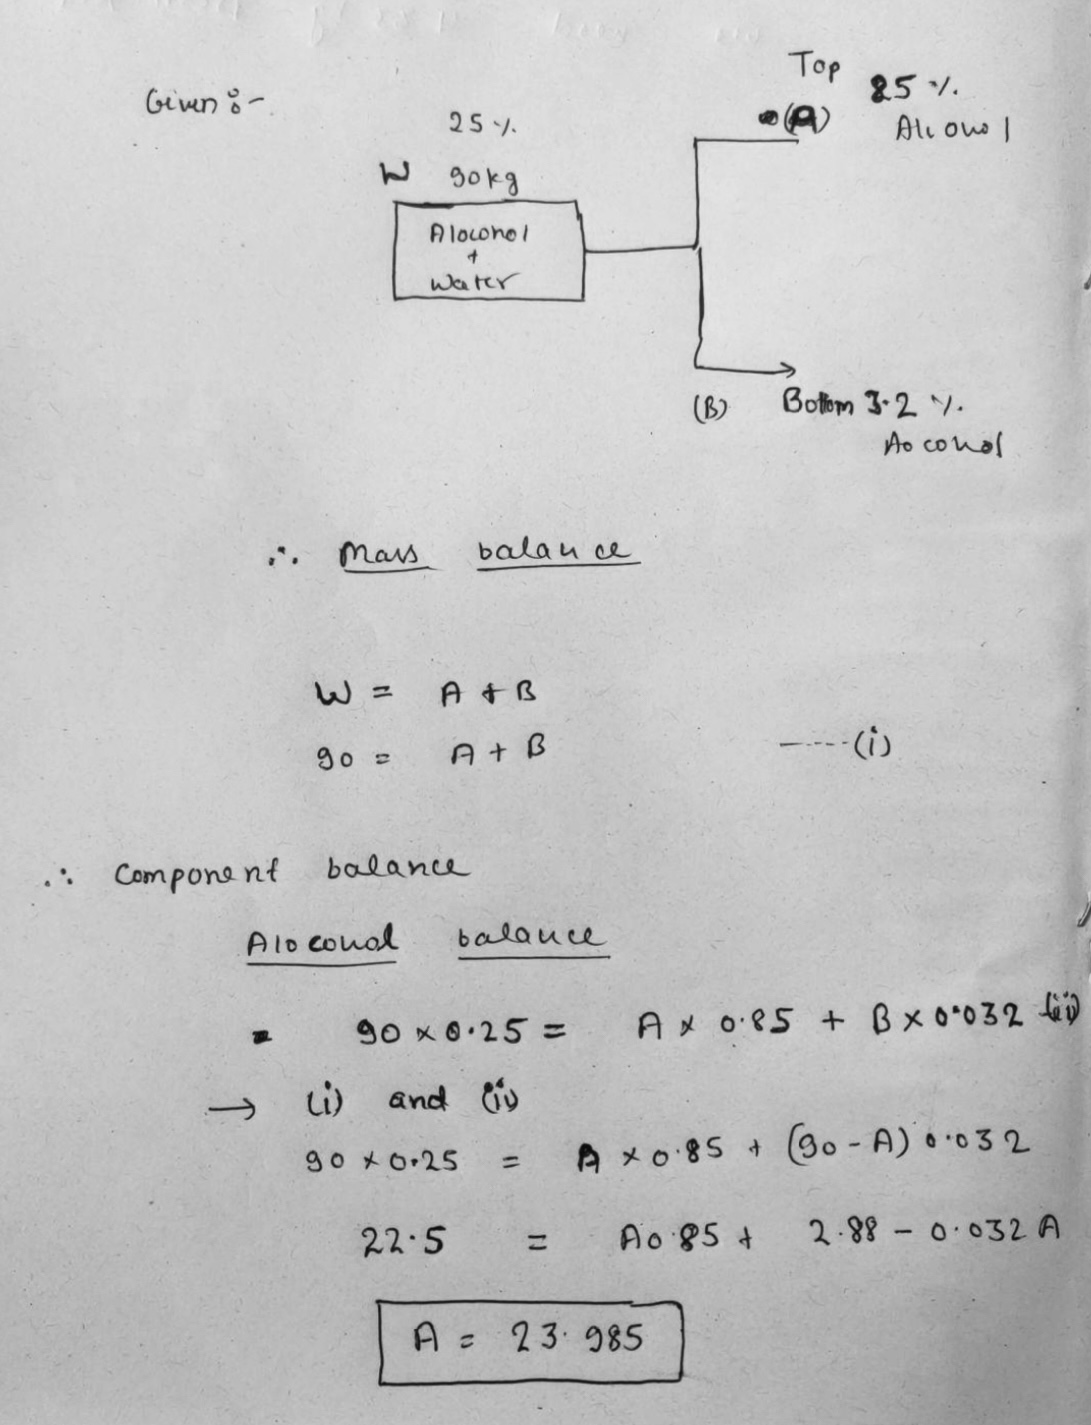 Given :-
25 %
W 90kg
Aloconol
+
Water
Top
(A)
85 %.
Alconol
(B) Bottom 3.2 %.
Aoconol
∴ Mass balance
W = A + B
90 = A + B ------(i)
∴ Component balance
Aloconal balance
= 90 × 0.25 = A × 0.85 + B × 0.032 (ii)
→ (i) and (ii)
90 × 0.25 = A × 0.85 + (90 - A) 0.032
22.5 = A0.85 + 2.88 - 0.032 A
A = 23.985